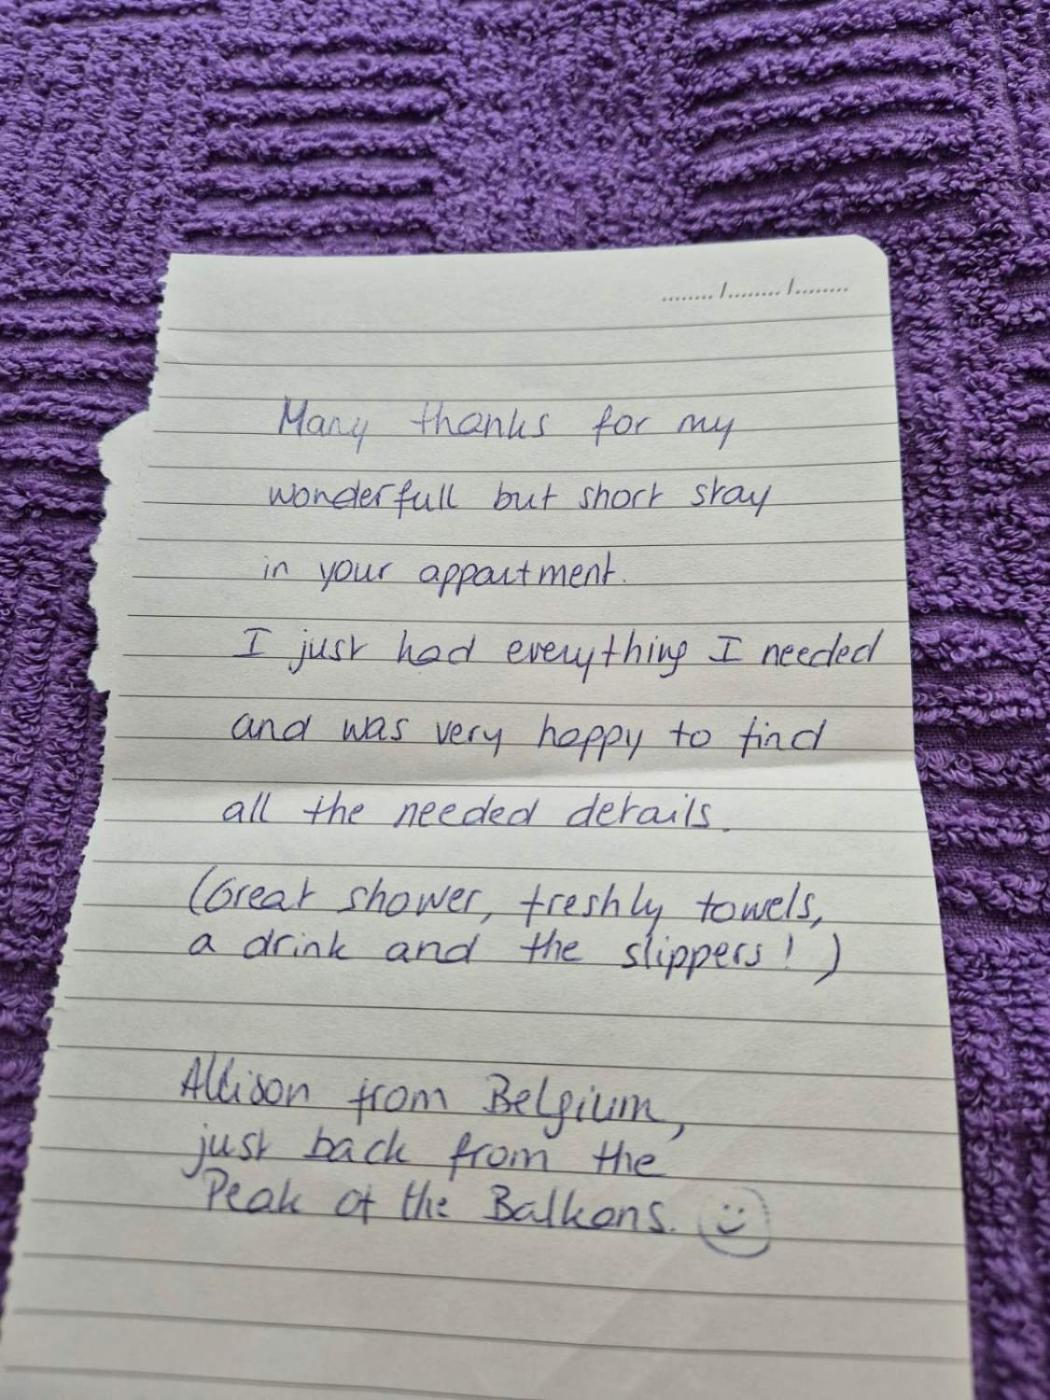 ......../......../........
Many thanks for my
wonderfull but short stay
in your appartment.
I just had everything I needed
and was very happy to find
all the needed details.
(Great shower, freshly towels,
a drink and the slippers! )
Allison from Belgium,
just back from the
Peak of the Balkans.